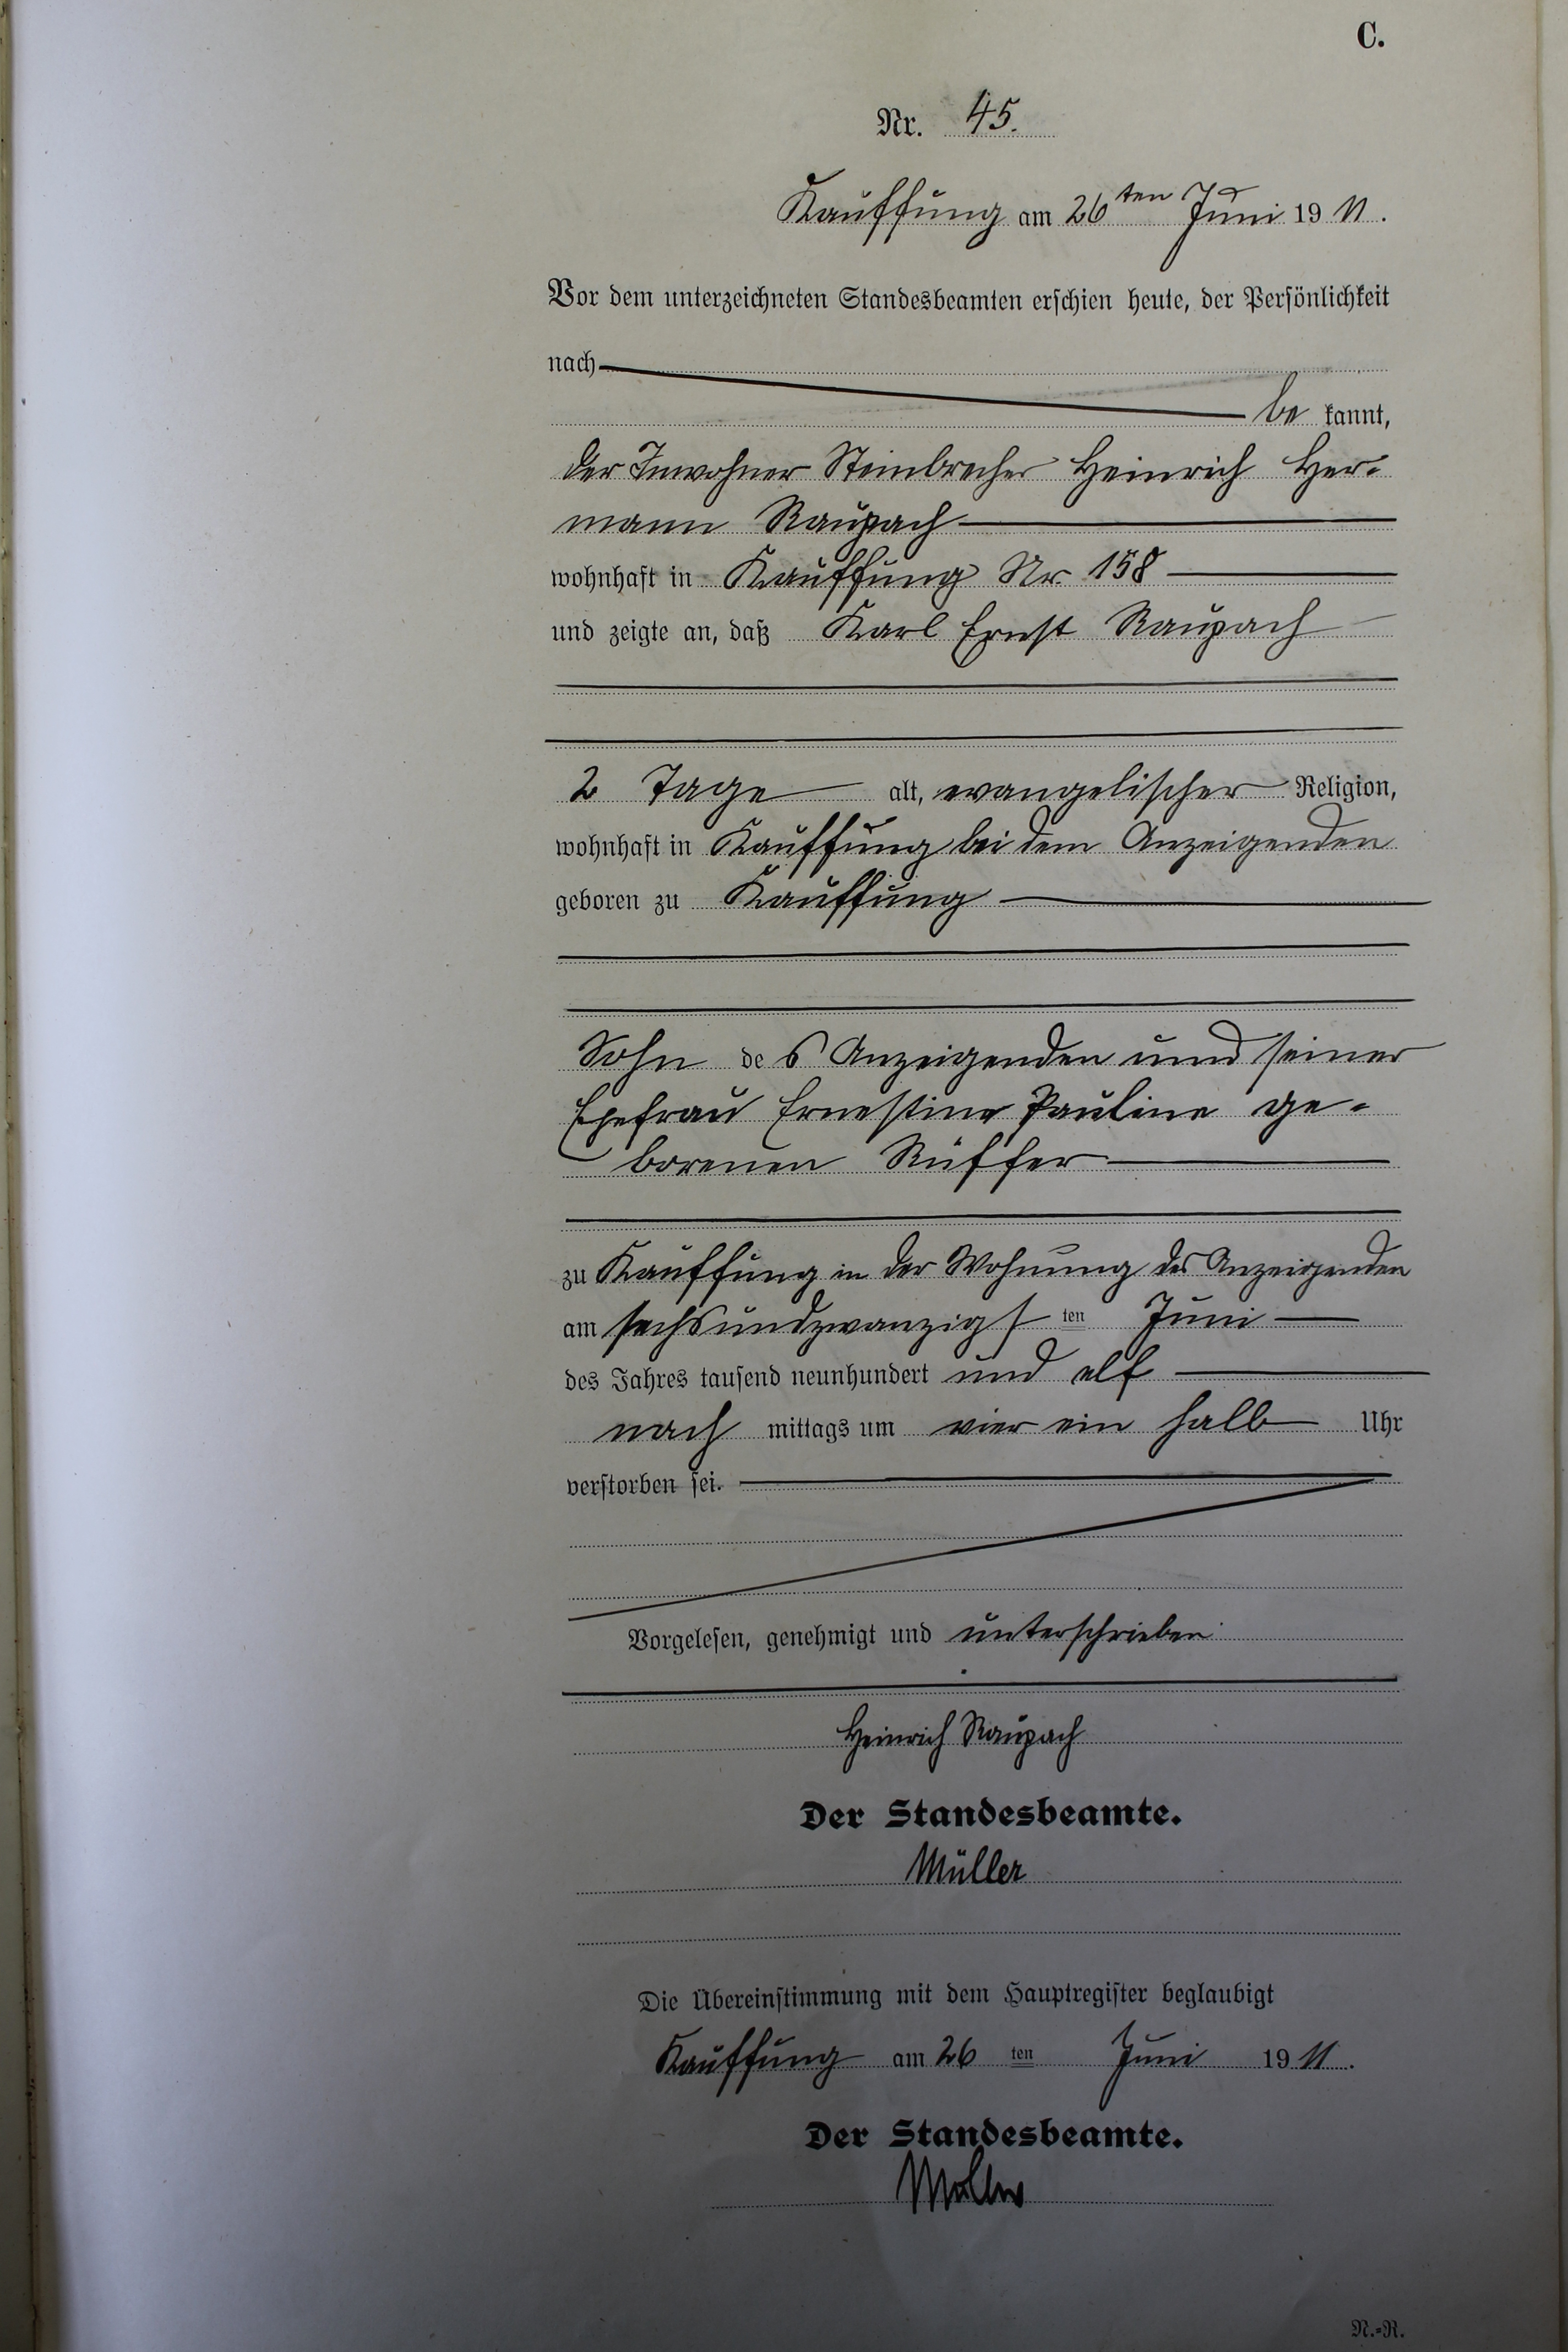 C.
Nr. 45.
Kauffung am 26ten Juni 1911.
Vor dem unterzeichneten Standesbeamten erschien heute, der Persönlichkeit
nach
be kannt,
der Inwohner Steinbrecher Heinrich Her-
mann Raupach
wohnhaft in Kauffung Nr. 158
und zeigte an, daß Karl Ernst Raupach
2 Tage alt, evangelischer Religion,
wohnhaft in Kauffung bei dem Anzeigenden
geboren zu Kauffung
Sohn des Anzeigenden und seiner
Ehefrau Ernestine Pauline ge-
borenen Rüffer
zu Kauffung in der Wohnung des Anzeigenden
am sechsundzwanzigsten Juni
des Jahres tausend neunhundert und elf
nach mittags um vier ein halb Uhr
verstorben sei.
Vorgelesen, genehmigt und unterschrieben
Heinrich Raupach
Der Standesbeamte.
Müller
Die Übereinstimmung mit dem Hauptregister beglaubigt
Kauffung am 26 ten Juni 1911.
Der Standesbeamte.
Müller
N.-R.